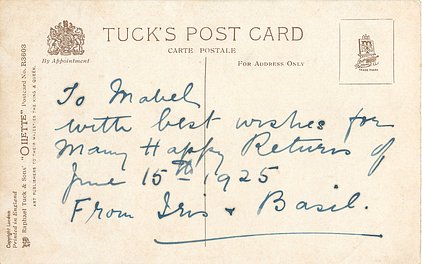 TUCK'S POST CARD
CARTE POSTALE
By Appointment
FOR ADDRESS ONLY
TRADE MARK
To Mabel
with best wishes for
Many Happy Returns of
June 15th 1925
From Iris & Basil.
Raphael Tuck & Sons' "OILETTE" Postcard No. R3603
ART PUBLISHERS TO THEIR MAJESTIES THE KING & QUEEN.
Copyright London
Printed in England